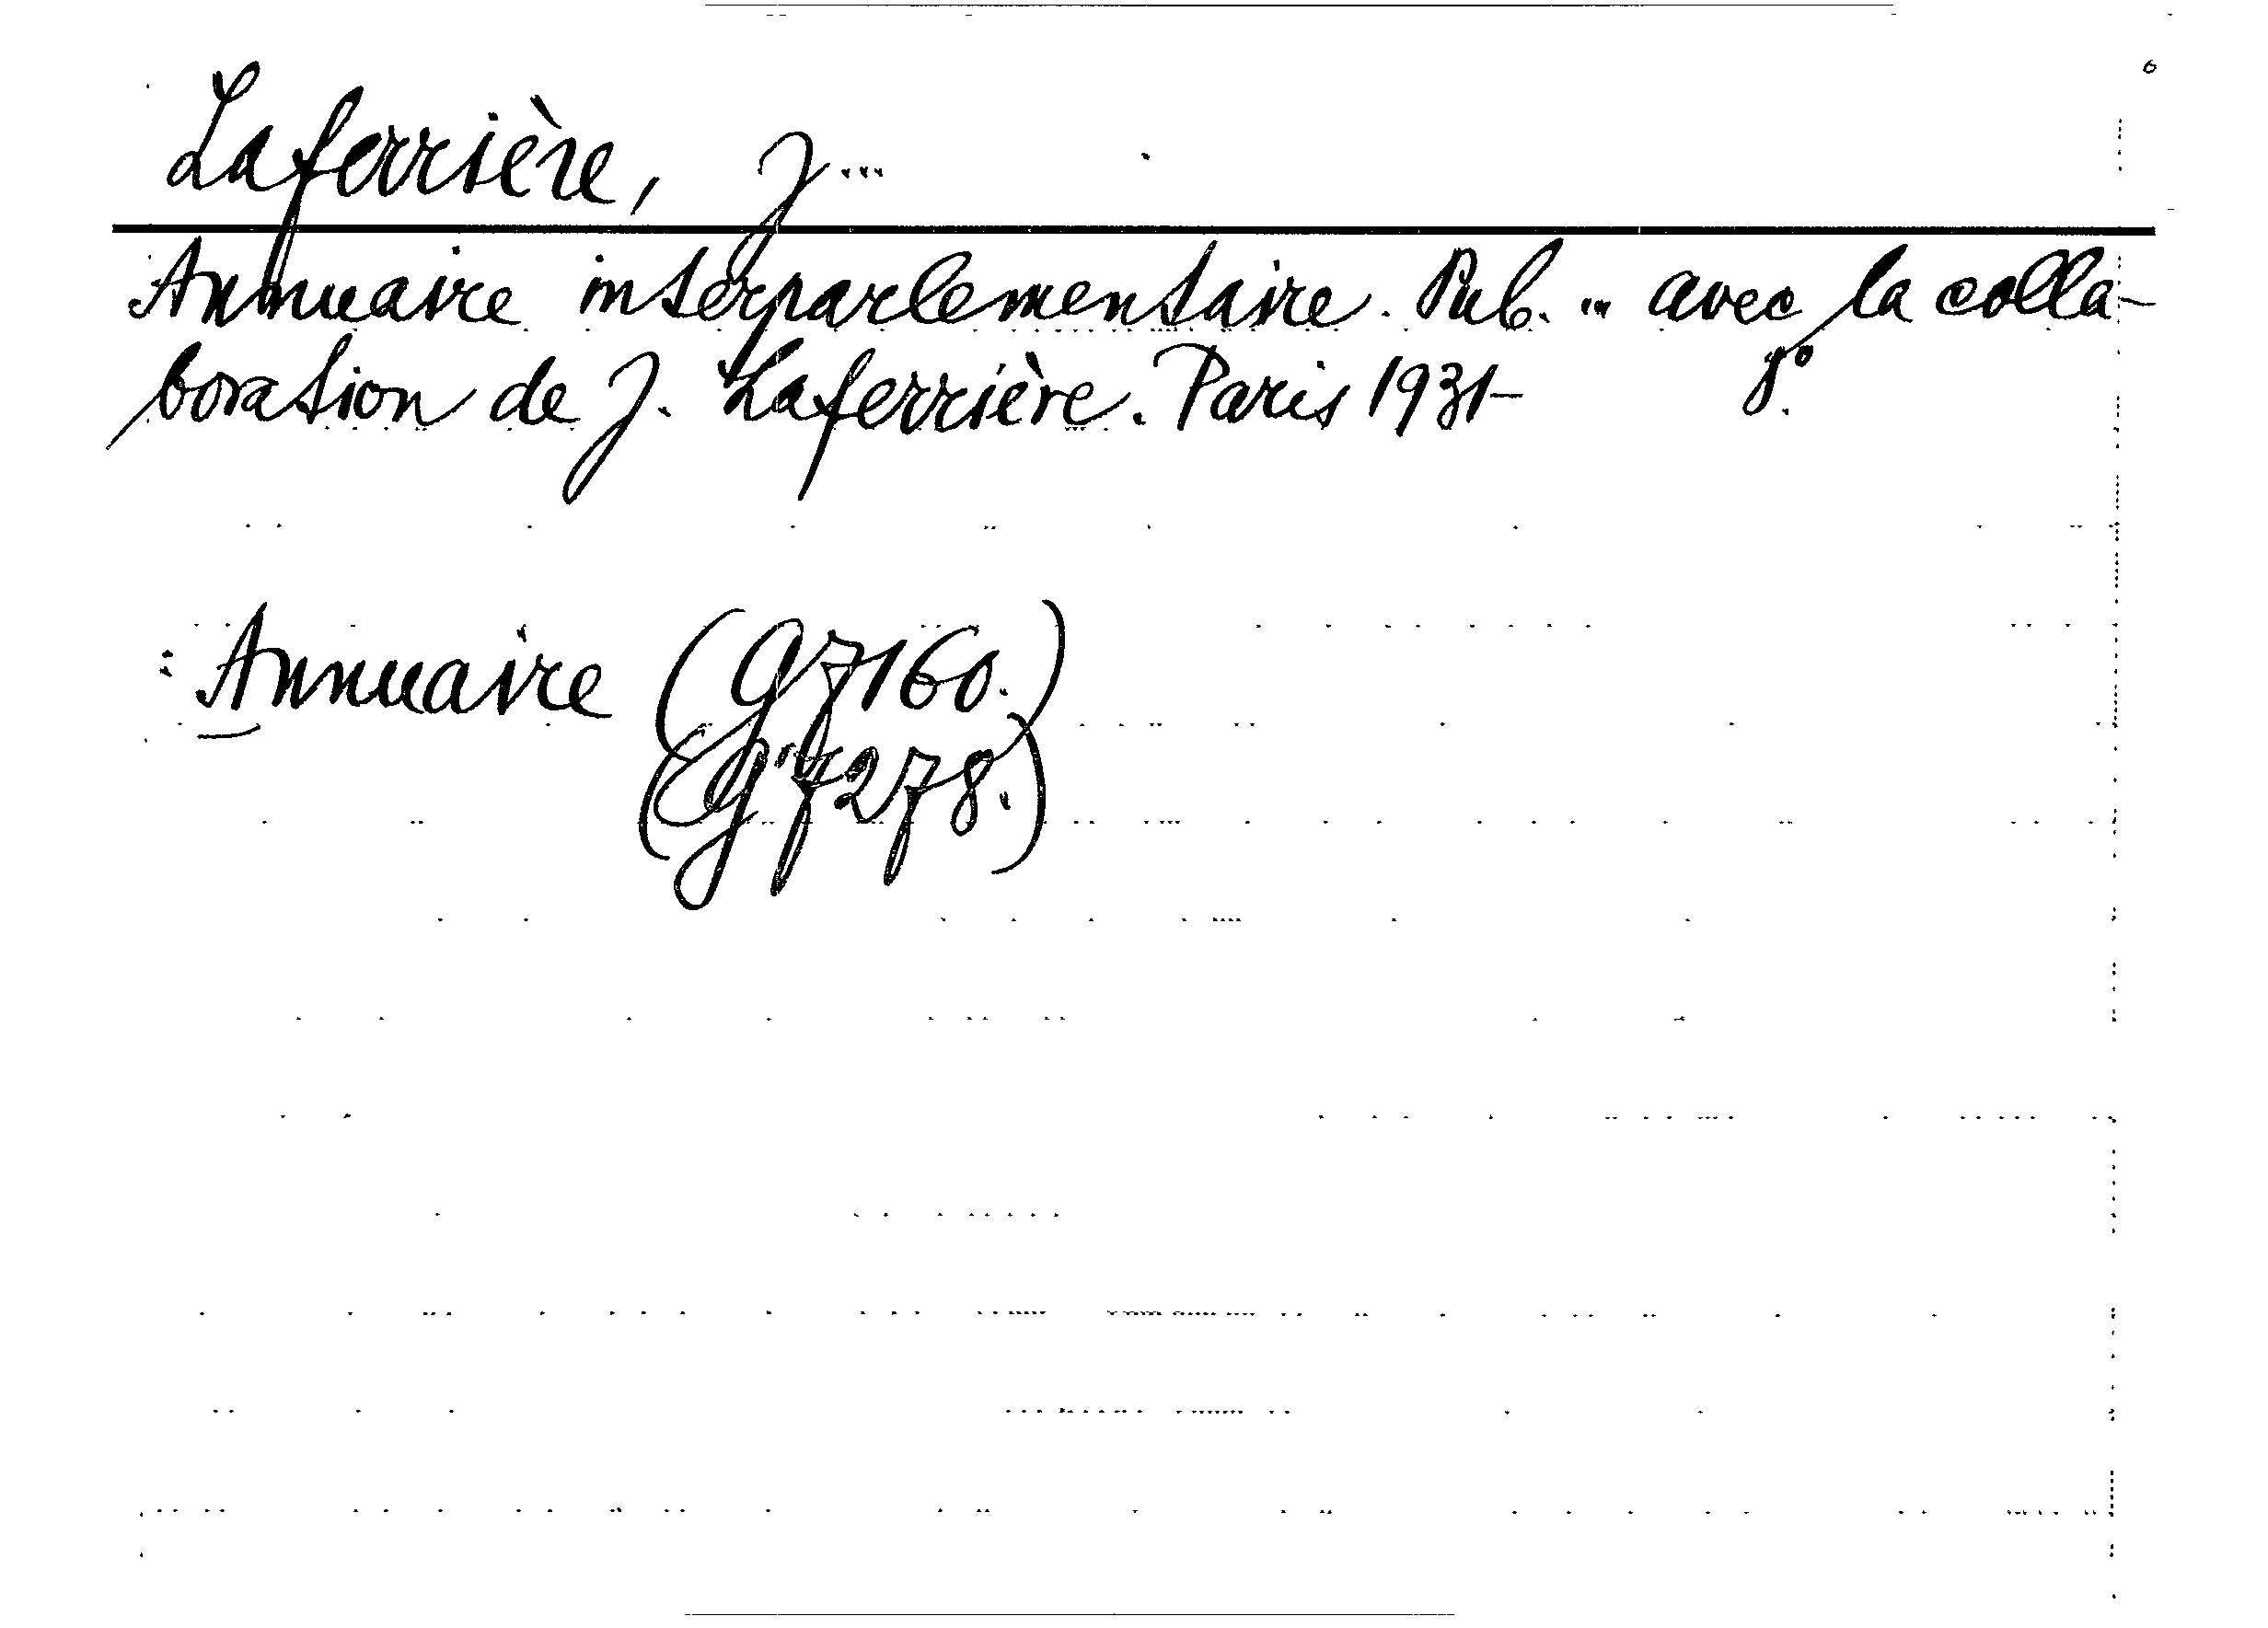 Laferrière, J...
Annuaire interparlementaire. Pub. ... avec la colla-
boration de J. Laferrière. Paris 1931- 8°.
: Annuaire (G7160.)
(G'7278.)